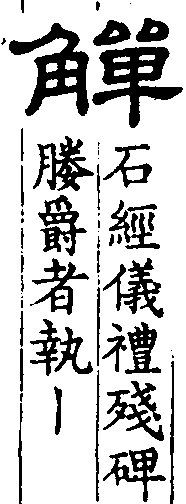 觶
石經儀禮殘碑
媵爵者執丨